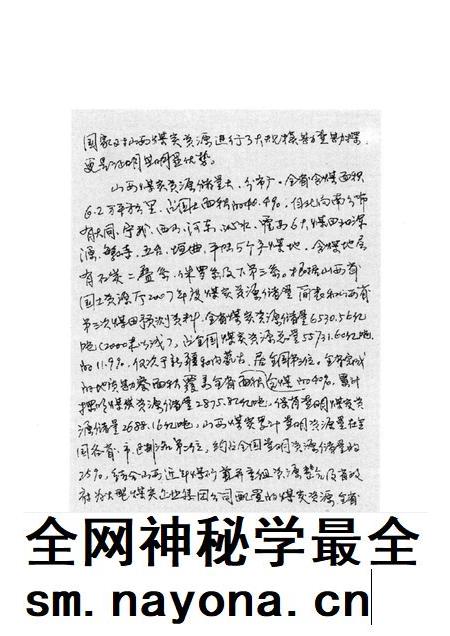 国家对山西煤炭资源进行了大规模普查勘探,
更是证明其明显优势。
山西煤炭资源储量大、分布广。全省含煤面积
6.2万平方公里,占国土面积的40.4%,自北向南分布
有大同、宁武、西山、河东、沁水、霍西6大煤田和浑
源、繁峙、五台、垣曲、平陆5个产煤地。含煤地层
有石炭二叠系、侏罗系及下第三系。根据山西省
国土资源厅2007年度煤炭资源储量简表和山西省
第三次煤田预测资料,全省煤炭资源储量6530.56亿
吨(2000米以浅),占全国煤炭资源总量55731.60亿吨
的11.9%,仅次于新疆和内蒙古,居全国第三位。全省完成
的地质勘查面积覆盖全省面积含煤的40%,累计
探明煤炭资源储量2875.82亿吨,保有查明煤炭资
源储量2688.16亿吨,山西煤炭累计查明资源量在全
国各省、市、区排第二位,约占全国查明资源储量的
25%,结合山西近年煤矿兼并重组资源整合及省政
府为大型煤炭企业集团公司配置的煤炭资源,全省
全网神秘学最全
sm.nayona.cn